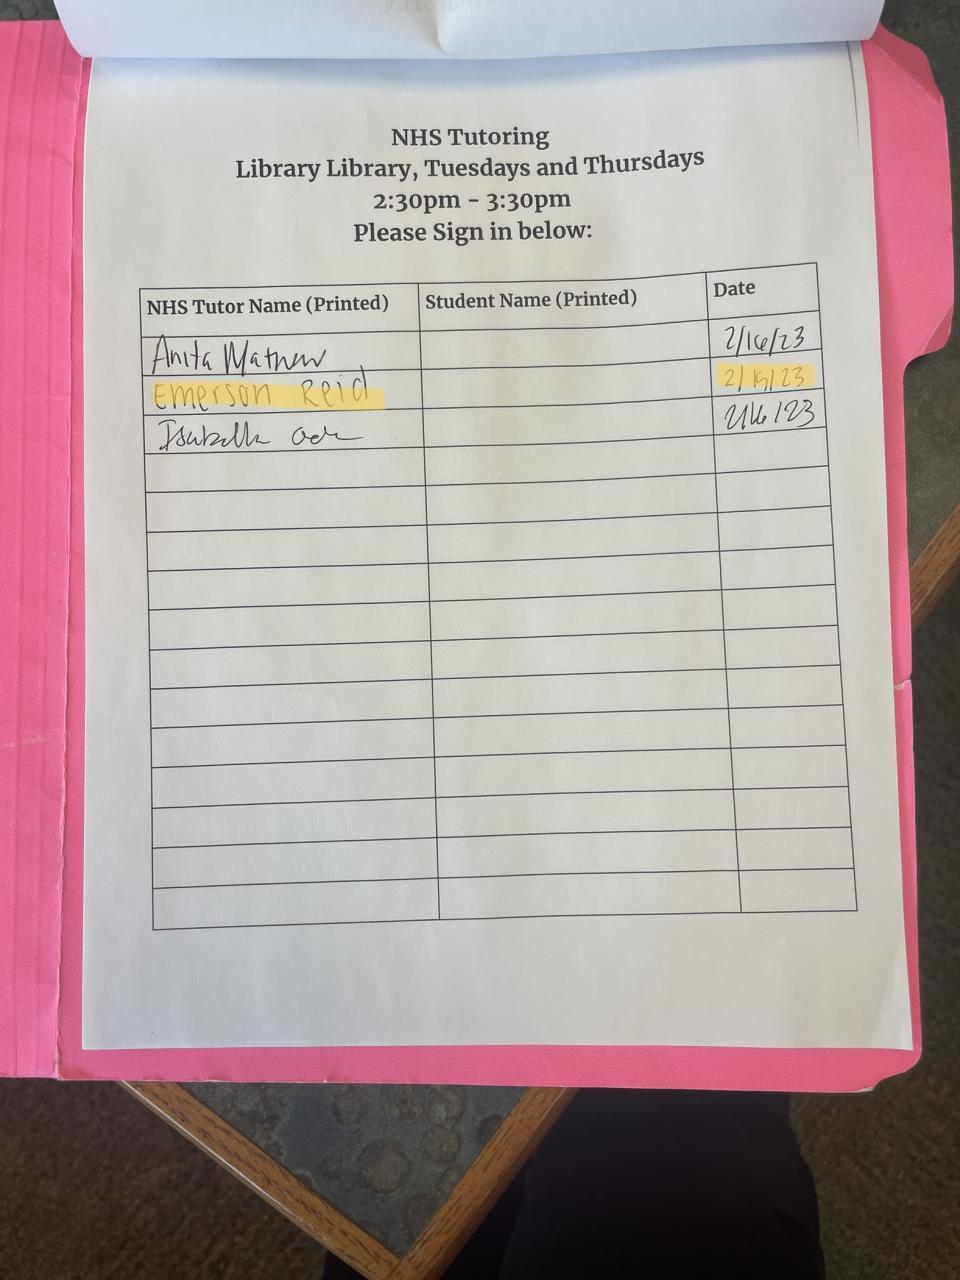 NHS Tutoring
Library Library, Tuesdays and Thursdays
2:30pm - 3:30pm
Please Sign in below:
NHS Tutor Name (Printed) Student Name (Printed) Date
Anita Mathew 2/16/23
Emerson Reid 2/ /23
Isabella 2/16/23